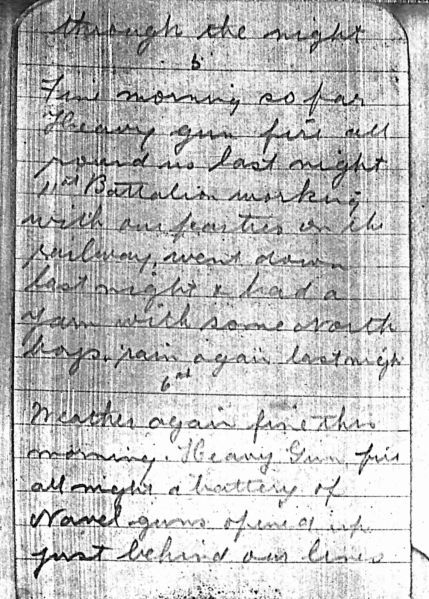 through the night
5
Fine morning so far
Heavy gun fire all
round us last night
11st Battalion working
with our parties on the
railway, went down
last night & had a
yarn with some North
boys. rain again last night
6st
Weather again fine this
morning. Heavy Gun fire
all night a battery of
Navel guns opened up
just behind our lines